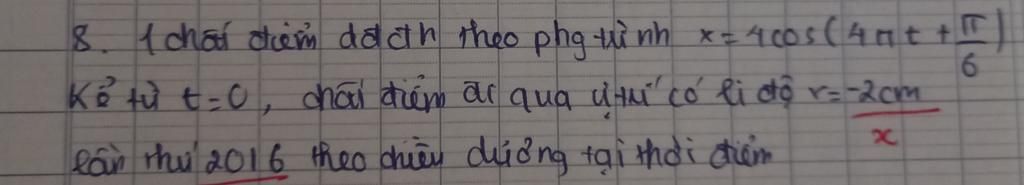 8. 1 chất điểm dđđh theo phg trình x = 4cos(4πt + π/6)
Kể từ t=0, chất điểm đi qua vị trí có li độ x = -2cm
x
lần thứ 2016 theo chiều dương tại thời điểm